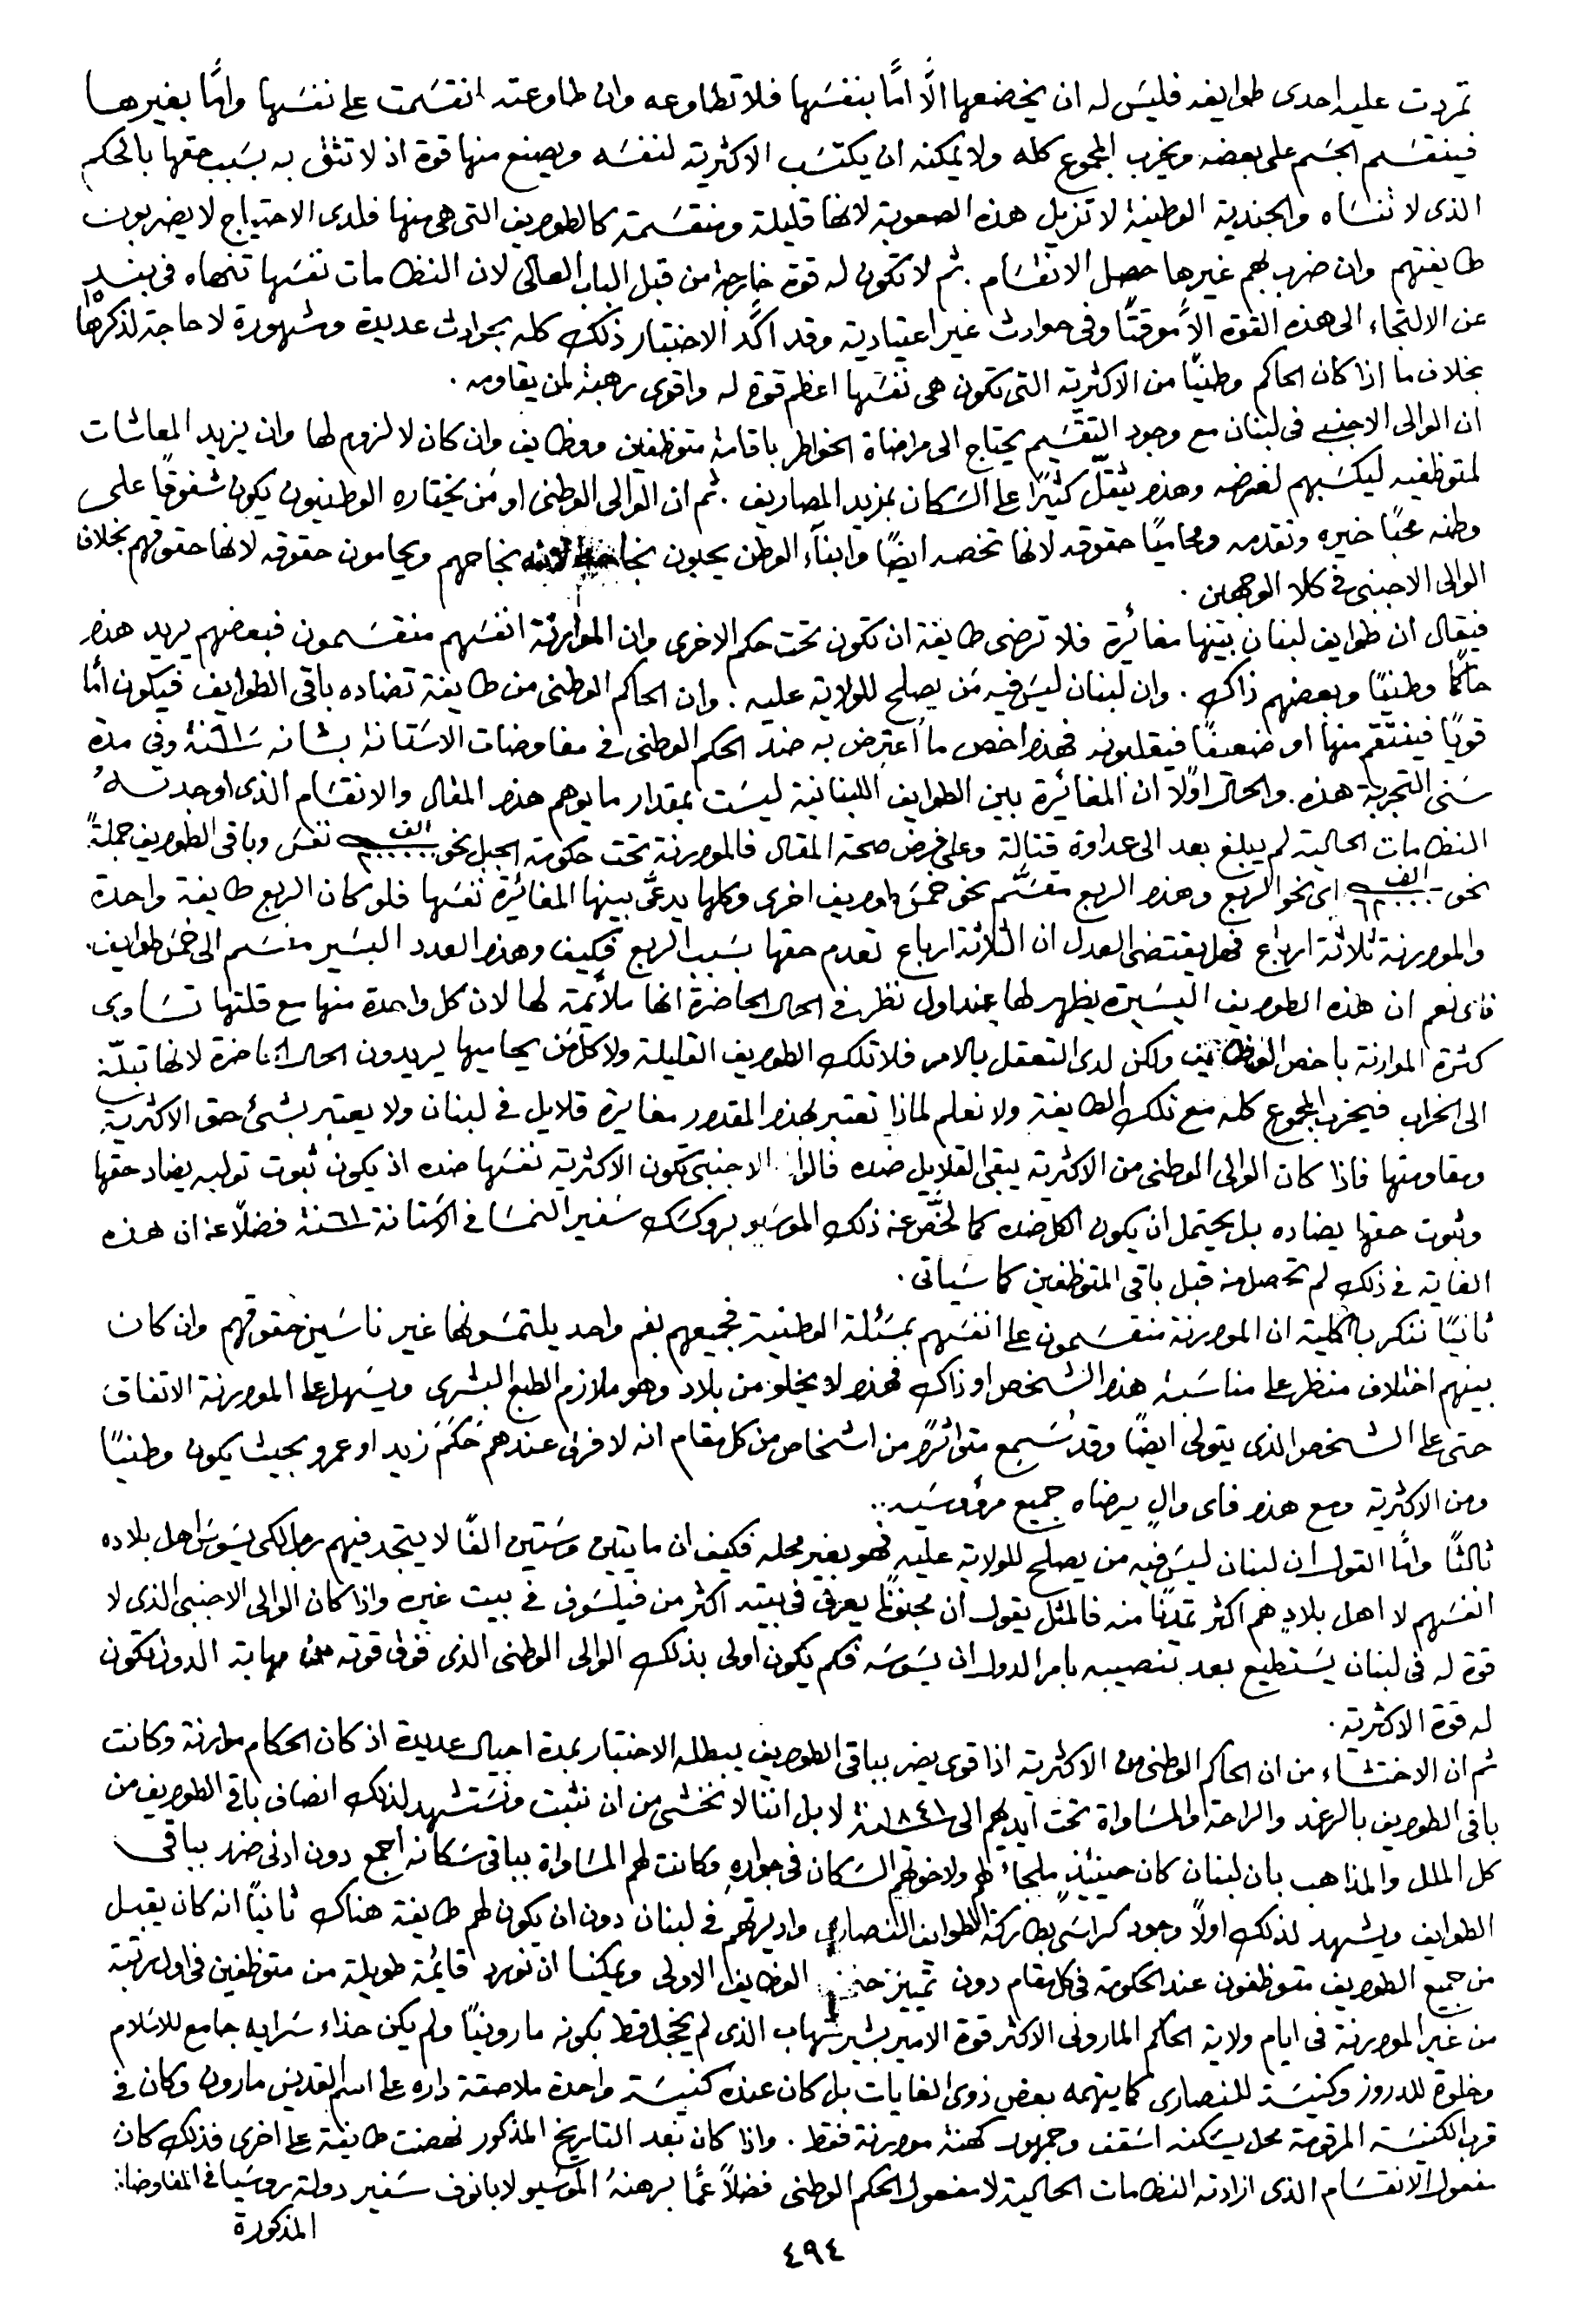 تمردت عليه احدى طوايفه فليس له ان يخضعها الَّا امَّا بنفسها فلا تطاوعه وان طاوعته انقسمت على نفسها وامَّا بغيرها
فينقسم الجسم على بعضه ويخرب المجموع كله ولا يمكنه ان يكتسب الاكثرية لنفسه ويصنع منها قوة اذ لا تثق به بسبب حقها بالحكم
الذى لا تنساه والجندية الوطنية لا تزيل هذه الصعوبة لانها قليلة ومنقسمة كالطوايف التى هى منها فلدى الاحتياج لا يضربون
طايفتهم وان ضرب بهم غيرها حصل الانقسام . ثم لا تكون له قوة خارجة من قبل الباب العالى لان النظامات نفسها تنهاه فى بند
عن الالتجاء الى هذه القوة الَّا موقتًا وفى حوادث غير اعتيادية وقد اكَّد الاختبار ذلك كله بحوادث عديدة وشهيرة لا حاجة لذكرها
بخلاف ما اذا كان الحاكم وطنيًا من الاكثرية التى تكون هى نفسها اعظم قوة له واقوى رهبة لمن يقاومه .
ان الوالى الاجنبى فى لبنان مع وجود التقسيم يحتاج الى مراضاة الخواطر باقامة متوظفين ووظايف وان كان لا لزوم لها وان يزيد المعاشات
لمتوظفيه ليكسبهم لغرضه وهذا يثقّل كثيرًا على السكان بمزيد المصاريف . ثم ان الوالى الوطنى او مَن يختاره الوطنيون يكون شفوقًا على
وطنه محبًا خيره وتقدمه ومحاميًا حقوقه لانها تخصه ايضًا وابنآء الوطن يحبون نجاحهم ويحامون حقوقه لانها حقوقهم بخلاف
الوالى الاجنبى فى كلا الوجهين .
فيقال ان طوايف لبنان بينها مغائرة فلا ترضى طايفة ان تكون تحت حكم الاخرى وان الموارنة انفسهم منقسمون فبعضهم يريد هذا
حاكمًا وطنيًا وبعضهم ذاك . وان لبنان ليس فيه مَن يصلح للولاية عليه . وان الحاكم الوطنى من طايفة تضاده باقى الطوايف فيكون امَّا
قويًا فينتقم منها او ضعيفًا فيقلبونه فهذا اخص ما اعترض به ضد الحكم الوطنى فى مفاوضات الاستانة بشانه سنة ٦١ وفى مدة
سنى التجربة هذه . والحال اولًا ان المغائرة بين الطوايف اللبنانية ليست بمقدار ما يوهم هذا المقال والانقسام الذى اوجدته
النظامات الحالية لم يبلغ بعد الى عداوة قتالة وعلى فرض صحة المقال فالموارنة تحت حكومة الجبل نحو الف نفس وباقى الطوايف جملةً
نحو الف اى نحو الربع وهذا الربع مقسَّم نحو خمس طوايف اخرى وكلها يدعى بينها المغائرة نفسها فلو كان الربع طايفة واحدة
والموارنة ثلاثة ارباع فهل يقتضى العدل ان الثلاثة ارباع تعدم حقها بسبب الربع فكيف وهذا العدد اليسير منقسم الى خمس طوايف .
فاى نعم ان هذه الطوايف اليسيرة يظهر لها عند اول نظر فى الحال الحاضرة انها ملائمة لها لان كل واحدة منها مع قلتها تساوى
كثرة الموارنة باخص الوظايف ولكن لدى التعقل بالامر فلا تلك الطوايف القليلة ولا كل مَن يحاميها يريدون الحال الحاضرة لانها تبلّغ
الى الخراب فيخرب المجموع كله مع تلك الطايفة ولا نعلم لماذا تعتبر بهذا المقدار مغايرة قلايل فى لبنان ولا يعتبر بشئ حق الاكثرية
ومقاومتها فاذا كان الوالى الوطنى من الاكثرية يبقى القلايل ضده فالوالى الاجنبى تكون الاكثرية نفسها ضده اذ يكون ثبوت توليه يضاد حقها
وثبوت حقها يضاده بل يحتمل ان يكون الكل ضده كما لخَّص عن ذلك الموسيو بروكسك سفير النمسا فى الاستانة سنة ٦١ فضلًا عن ان هذه
الغاية فى ذلك لم تحصل من قبل باقى المتوظفين كما سياتى .
ثانيًا ننكر بالكلية ان الموارنة منقسمون على انفسهم بمسئلة الوطنية فجميعهم بفم واحد يلتمسونها غير ناسين حقوقهم وان كان
بينهم اختلاف منظر على مناسبة هذا الشخص او ذاك فهذا لا يخلو من بلاد وهو ملازم الطبع البشرى ويسهل على الموارنة الاتفاق
حتى على الشخص الذى يتولى ايضًا وقد سُمع متواترًا من اشخاص من كل مقام انه لا فرق عندهم حَكَم زيد او عمرو بحيث يكون وطنيًا
ومن الاكثرية ومع هذا فاى والٍ يرضاه جميع مرؤوسيه ..
ثالثًا وامَّا القول ان لبنان ليس فيه من يصلح للولاية عليه فهو بغير محله فكيف ان مايتين وستين الفًا لا يتجد فيهم رجل لكى يسوس اهل بلاده
انفسهم لا اهل بلادٍ هم اكثر تمدّنًا منه فالمثل يقول ان مجنونًا يعرف فى بيته اكثر من فيلسوف فى بيت غيره واذا كان الوالى الاجنبى الذى لا
قوة له فى لبنان يستطيع بعد تنصيبه بامر الدول ان يسوسه فكم يكون اولى بذلك الوالى الوطنى الذى فوق قوته من مهابة الدول تكون
له قوة الاكثرية .
ثم ان الاختشاء من ان الحاكم الوطنى من الاكثرية اذا قوى يضر بباقى الطوايف يبطله الاختبار بمدة اجيال عديدة اذ كان الحكام موارنة وكانت
باقى الطوايف بالرغد والراحة والمساواة تحت ايديهم الى سنة ١٨٤١ لا بل اننا لا نخشى من ان نثبت ونستشهد لذلك انصاف باقى الطوايف من
كل الملل والمذاهب بان لبنان كان حينيذٍ ملجاءً لهم ولاخوتهم السكان فى جواره وكانت لهم المساواة بباقى سكانه اجمع دون ادنى ضرر بباقى
الطوايف ويشهد لذلك اولًا وجود كراسى بطاركة الطوايف النصارى واديرتهم فى لبنان دون ان يكون لهم طايفة هناك ثانيًا انه كان يقبل
من جميع الطوايف متوظفون عند الحكومة فى كل مقام دون تمييز حتى الوظايف الاولى ويمكننا ان نورد قائمة طويلة من متوظفين فى اول رتبة
من غير الموارنة فى ايام ولاية الحاكم المارونى الاكثر قوة الامير بشير شهاب الذى لم يخجل قط بكونه مارونيًا ولم يكن حذاء سرايه جامع للاسلام
وخلوة للدروز وكنيسة للنصارى كما يتهمه بعض ذوى الغايات بل كان عنده كنيسة واحدة ملاصقة داره على اسم القديس مارون وكان فى
قرب الكنيسة المرقومة محل يسكنه اسقف وجمهور كهنة موارنة فقط . واذا كان بعد التاريخ المذكور نهضت طايفة على اخرى فذلك كان
مفعول الانقسام الذى ارادته النظامات الحالية لا مفعول الحكم الوطنى فضلًا عمَّا برهنهُ الموسيو لابانوف سفير دولة روسيا فى المفاوضات
المذكورة
٤٩٤